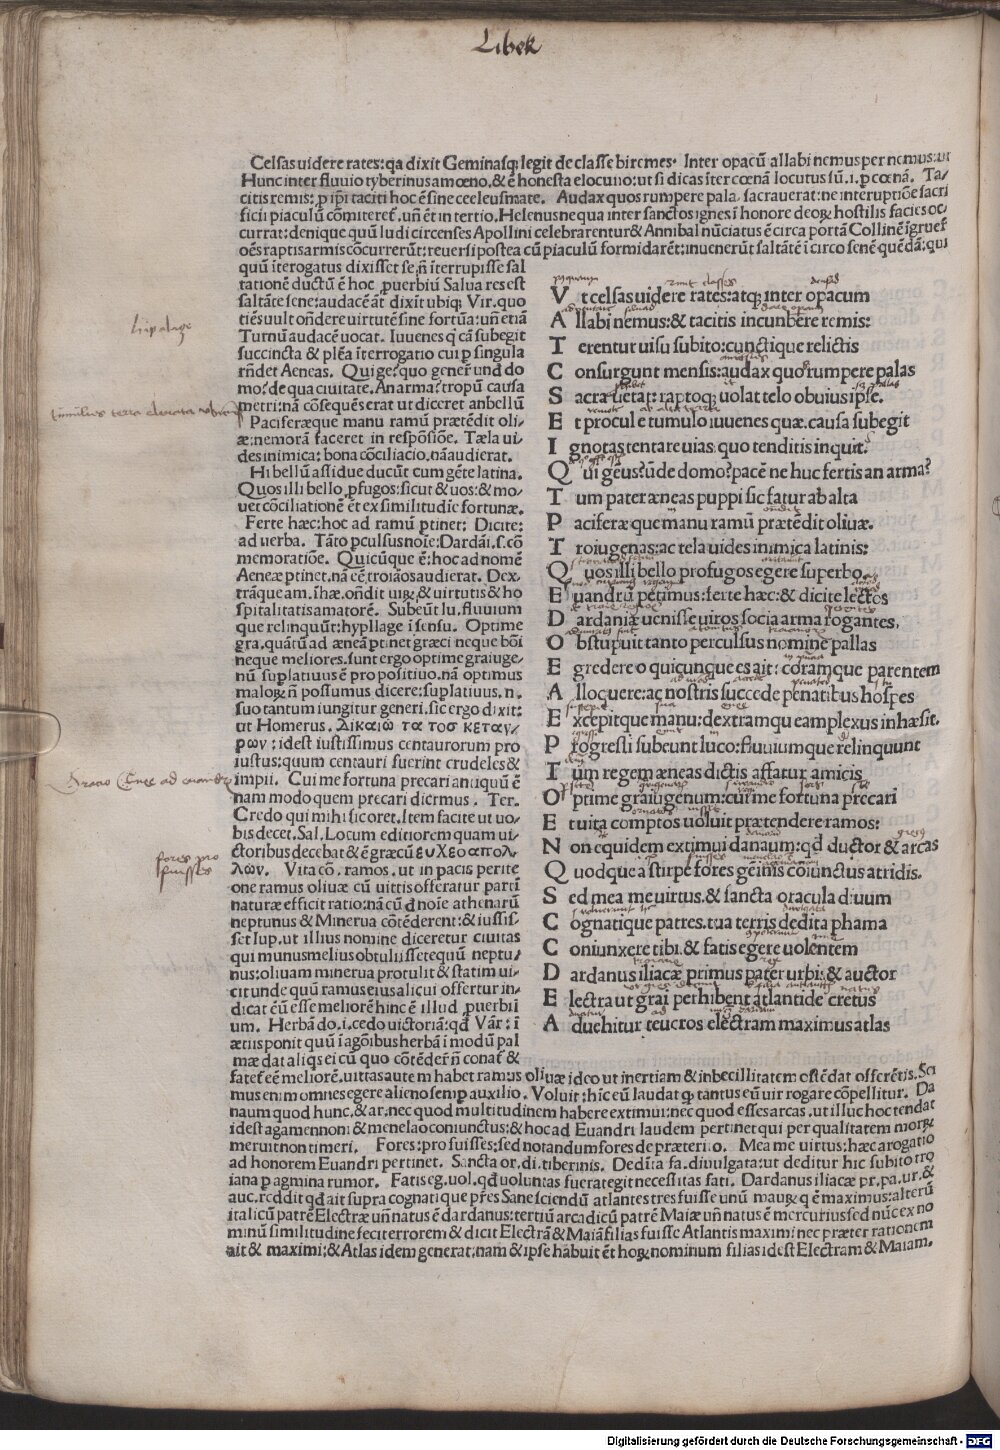 Liber
Celsas uidere rates: qa dixit Geminasq; legit de classe biremes. Inter opacū allabi nemus per nemus: ut
Hunc inter fluuio tyberinus amœno. & ē honesta elocutio: ut si dicas īter cœnā locutus sū .i. ꝑ cœnā. Ta/
citis remis: ꝑ ip̄i taciti hoc ē sine ceeleusmate. Audax quos rumpere pala. sacrauerat: ne interuptiōe sacri
ficii piaculū cōmiteret. uñ ēt in tertio. Helenus ne qua inter sanctos ignes ī honore deoꝝ hostilis facies oc/
currat: denique quū ludi circenses Apollini celebrarentur & Annibal nūciatus ē circa portā Collinē īgruer̄
oēs raptis armis cōcurrerūt: reuersi postea cū piaculū formidarēt: inuenerūt saltātē ī circo senē quēdā: qui
quū īterogatus dixisset se ñ īterrupisse sal
tationē ductū ē hoc ꝓuerbiū Salua res est
saltāte sene: audacē āt dixit ubiq; Vir. quo
tiēs uult oñdere uirtutē sine fortūa: uñ etiā
Turnū audacē uocat. Iuuenes q̄ cā subegit
succincta & plēa īterrogatio cui ꝑ singula
rñdet Aeneas. Qui ge? quo gener̄ und do
mo? de qua ciuitate. An arma? tropū causa
metri: nā cōsequēs erat ut diceret an bellū
Paciferæque manu ramū prætēdit oli/
æ: nemorā faceret in respōsiōe. Tæla ui/
des inimica: bona cōciliacio. nā audierat.
Hi bellū assidue ducūt cum gēte latina.
Quos illi bello ꝓfugos: sicut & uos: & mo/
uet cōciliationē ēt ex similitudīe fortunæ.
Ferte hæc: hoc ad ramū ꝑtinet: Dicite:
ad uerba. Tāto ꝑculsus noīe: Dardāi .s. cō
memoratiōe. Quicūque ē: hoc ad nomē
Aeneæ ꝑtinet. nā cē troiāos audierat. Dex/
trāque am. ī hæ. oñdit uiꝝ & uirtutis & ho
spitalitatis amatorē. Subeūt lu. fluuium
que relinquūt: hypllage ī sensu. Optime
gra. quātū ad æneā ꝑtinet græci neque bōi
neque meliores. sunt ergo optime graiuge/
nū suplatiuus ē pro positiuo. nā optimus
maloꝝ ñ possumus dicere: suplatiuus. n.
suo tantum iungitur generi. sic ergo dixit:
ut Homerus. Δικαιῶ τα τος κεταν/
ρων: idest iustissimus centaurorum pro
iustus: quum centauri fuerint crudeles &
impii. Cui me fortuna precari antiquū ē
nam modo quem precari dicrmus. Ter.
Credo qui mihi sic oret. Item facite ut uo/
bis decet. Sal. Locum editiorem quam ui/
ctoribus decebat & ē græcū ευΧεο απολ
λων. Vita cō. ramos. ut in pacis petite
one ramus oliuæ cū uittis offeratur parti
naturæ efficit ratio: nā cū d noīe athenarū
neptunus & Minerua cōtēderent: & iussis/
set Iup. ut illius nomine diceretur ciuitas
qui munus melius obtulissetequū neptu/
nus: oliuam minerua protulit & statim ui/
cit unde quū ramus eius alicui offertur in/
dicat eū esse meliorē hinc ē illud ꝓuerbii
um. Herbā do. i. cedo uictoriā: qđ Vār: ī
ætiis ponit quū ī agōibus herbā ī modū pal
mæ dat aliqs ei cū quo cōtēder̄ ñ conat̄ &
fatet̄ eē meliorē. uittas autem habet ramus oliuæ ideo ut inertiam & inbecillitatem ostēdat offerētis. Sci
mus enim omnes egere alieno semꝑ auxilio. Voluit: hic eū laudat q tantus eū uir rogare cōpellitur. Da
naum quod hunc. & ar: nec quod multitudinem habere extimui: nec quod esses arcas. ut illuc hoc tendat
idest agamennoni & menelao coniunctus: & hoc ad Euandri laudem pertinet qui per qualitatem moꝝ
meruit non timeri. Fores: pro fuisses: sed notandum fores de præterito. Mea me uirtus: hæc arogatio
ad honorem Euandri pertinet. Sancta or. di. tiberinis. Dedita fa. diuulgata: ut deditur hic subito tro
iana ꝑ agmina rumor. Fatis eg. uol. qđ uoluntas fuerat egit necessitas fati. Dardanus iliacæ pr. pa. ur. &
auc. reddit qđ ait supra cognatique pr̄es Sane sciendū atlantes tres fuisse unū mauꝝ q ē maximus: alterū
italicū patrē Electræ uñ natus ē dardanus: tertiū arcadicū patrē Maiæ uñ natus ē mercurius sed nūc ex no
minū similitudine fecit errorem & dicit Electrā & Maiā filias fuisse Atlantis maximi nec præter rationem
ait & maximi: & Atlas idem generat: nam & ipse habuit ēt hoꝝ nominum filias idest Electram & Maiam.
Vt celsas uidere rates: atq; inter opacum
Allabi nemus: & tacitis incunbere remis:
Terentur uisu subito: cunctique relictis
Consurgunt mensis: audax quos rumpere palas
Sacra uetat: raptoq; uolat telo obuius ipse.
Et procul e tumulo iuuenes quæ causa subegit
Ignotas tentare uias: quo tenditis inquit:
Qui geus? ūde domo? pacē ne huc fertis an arma?
Tum pater æneas puppi sic fatur ab alta
Paciferæque manu ramū prætēdit oliuæ.
Troiugenas: ac tela uides inimica latinis:
Quos illi bello profugos egere superbo.
Euandrū petimus: ferte hæc: & dicite lectos
Dardaniæ uenisse uiros socia arma rogantes.
Obstupuit tanto perculsus nomine pallas
Egredere o quicunque es ait: coramque parentem
Alloquere: ac nostris succede penatibus hospes
Excepitque manu: dextramqu eamplexus inhæsit.
Progressi subeunt luco: fluuiumque relinquunt
Tum regem æneas dictis affatur amicis
Optime graiugenum: cui me fortuna precari
Et uita comptos uoluit prætendere ramos:
Non equidem extimui danaum: qđ ductor & arcas
Quodque a stirpe fores gēinis coiunctus atridis.
Sed mea me uirtus. & sancta oracula diuum
Cognatique patres. tua terris dedita phama
Coniunxere tibi. & fatis egere uolentem
Dardanus iliacæ primus pater urbi: & auctor
Electra ut grai perhibent atlantide cretus
Aduehitur teucros electram maximus atlas
hipalage
fores pro
fuisses
Digitalisierung gefördert durch die Deutsche Forschungsgemeinschaft - DFG